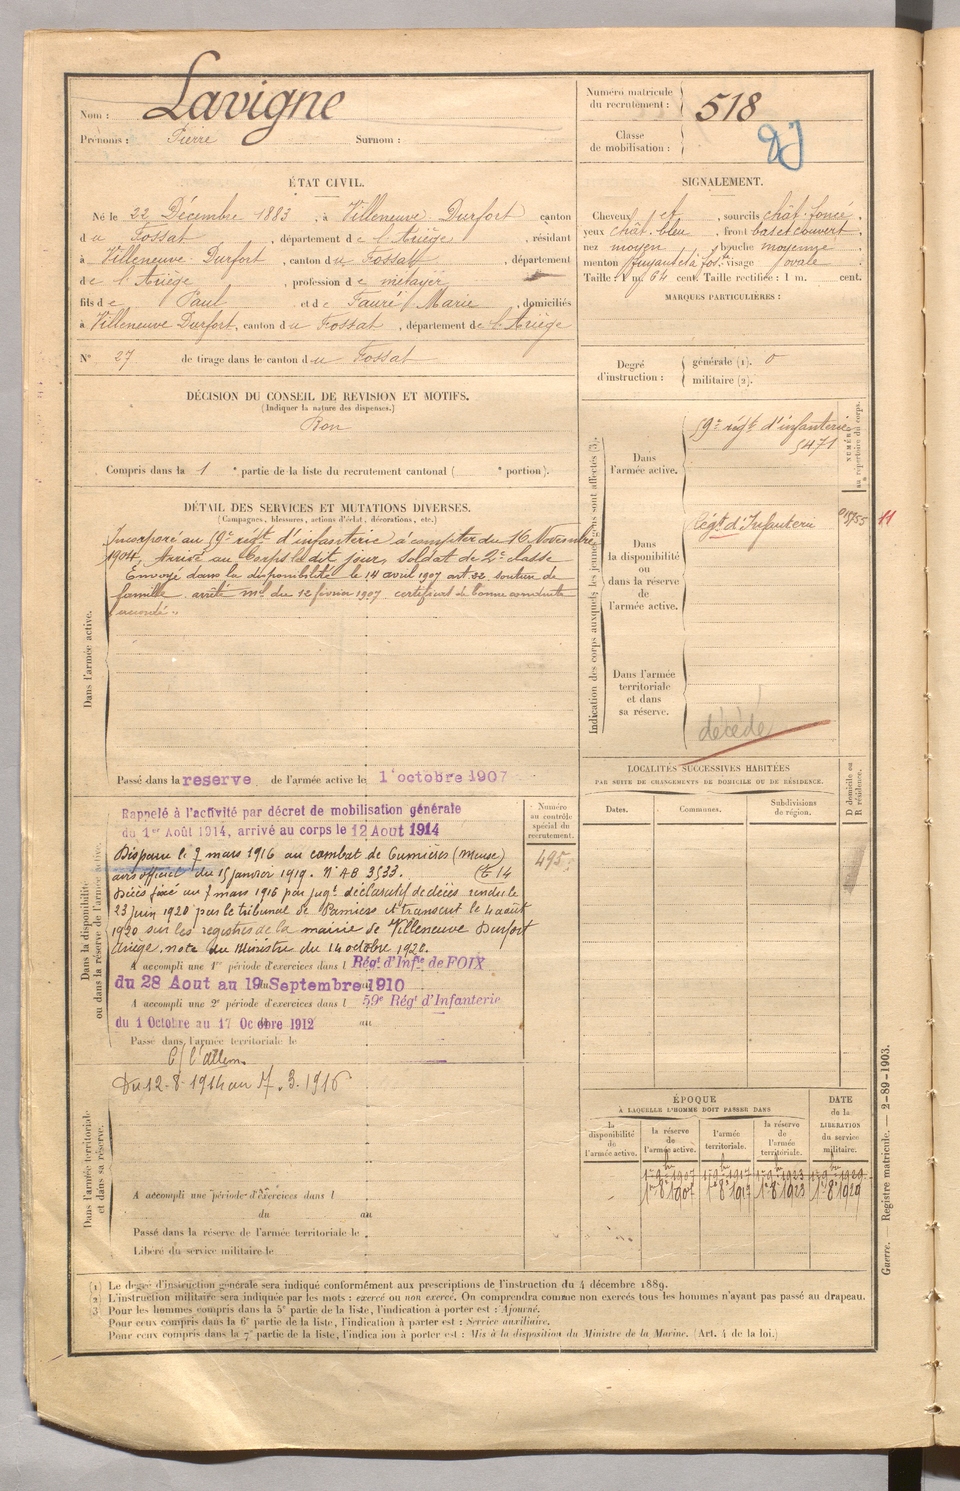 Nom : Lavigne
Prénoms : Pierre Surnom :
Numéro matricule du recrutement : 518
Classe de mobilisation :
ÉTAT CIVIL.
Né le 22 Décembre 1883, à Villeneuve Durfort canton
du Fossat, département de l'Ariège, résidant
à Villeneuve Durfort, canton du Fossat, département
de l'Ariège, profession de métayer
fils de Paul et de Fauré Marie, domiciliés
à Villeneuve Durfort, canton du Fossat, département de l'Ariège
N° 27 de tirage dans le canton du Fossat
SIGNALEMENT.
Cheveux et, sourcils chât. foncé,
yeux chât. bleu, front bas et couvert,
nez moyen, bouche moyenne
menton fuyant et à fos.te visage ovale
Taille : 1 m. 64 cent. Taille rectifiée : 1 m. cent.
MARQUES PARTICULIÈRES :
Degré d'instruction : générale (1). 0
militaire (2).
DÉCISION DU CONSEIL DE REVISION ET MOTIFS.
(Indiquer la nature des dispenses.)
Bon
Compris dans la 1e partie de la liste du recrutement cantonal ( e portion).
DÉTAIL DES SERVICES ET MUTATIONS DIVERSES.
(Campagnes, blessures, actions d'éclat, décorations, etc.)
Dans l'armée active.
Incorporé au 59e régt d'infanterie à compter du 16 Novembre
1904. Arrivé au Corps le dit jour, soldat de 2e classe
Envoyé dans la disponibilité le 14 avril 1907 art. 22 soutien de
famille. arrêté mel du 12 février 1907 certificat de bonne conduite
accordé.
Passé dans la reserve de l'armée active le 1 octobre 1907
Indication des corps auxquels les jeunes gens sont affectés (3).
NUMÉRO au répertoire du corps.
Dans l'armée active.
59e régt d'infanterie
5471
Dans la disponibilité ou dans la réserve de l'armée active.
Régt d'Infanterie
11
Dans l'armée territoriale et dans sa réserve.
décédé
Dans la disponibilité ou dans la réserve de l'armée active.
Rappelé à l'activité par décret de mobilisation générale
du 1er Août 1914, arrivé au corps le 12 Aout 1914
Disparu le 7 mars 1916 au combat de Cumières (Meuse)
avis officiel du 15 janvier 1919. N° AB 3533.
Décès fixé au 7 mars 1916 par jugt déclaratif de décès rendu le
23 juin 1920 par le tribunal de Pamiers et transcrit le 4 août
1920 sur les registres de la mairie de Villeneuve Durfort
Ariège. note du Ministre du 14 octobre 1920.
A accompli une 1re période d'exercices dans l Régt d'Infie de FOIX
du 28 Aout au 19 Septembre 1910
A accompli une 2e période d'exercices dans l 59e Régt d'Infanterie
du 1 Octobre au 17 Octobre 1912
Passé dans l'armée territoriale le
C/ l'Allem.
Du 12-8-1914 au 7.3.1916
Numéro au contrôle spécial du recrutement.
495
LOCALITÉS SUCCESSIVES HABITÉES
PAR SUITE DE CHANGEMENTS DE DOMICILE OU DE RÉSIDENCE.
D domicile ou R résidence.
Dates. Communes. Subdivisions de région.
Dans l'armée territoriale et dans sa réserve.
A accompli une période d'exercices dans l
du au
Passé dans la réserve de l'armée territoriale le
Libéré du service militaire le
ÉPOQUE
À LAQUELLE L'HOMME DOIT PASSER DANS
DATE de la LIBÉRATION du service militaire.
la disponibilité de l'armée active.
la réserve de l'armée active.
l'armée territoriale.
la réserve de l'armée territoriale.
Guerre. — Registre matricule. — 2-89-1903.
(1) Le degré d'instruction générale sera indiqué conformément aux prescriptions de l'instruction du 4 décembre 1889.
(2) L'instruction militaire sera indiquée par les mots : exercé ou non exercé. On comprendra comme non exercés tous les hommes n'ayant pas passé au drapeau.
(3) Pour les hommes compris dans la 5e partie de la liste, l'indication à porter est : Ajourné.
Pour ceux compris dans la 6e partie de la liste, l'indication à porter est : Service auxiliaire.
Pour ceux compris dans la 7e partie de la liste, l'indication à porter est : Mis à la disposition du Ministre de la Marine. (Art. 4 de la loi.)